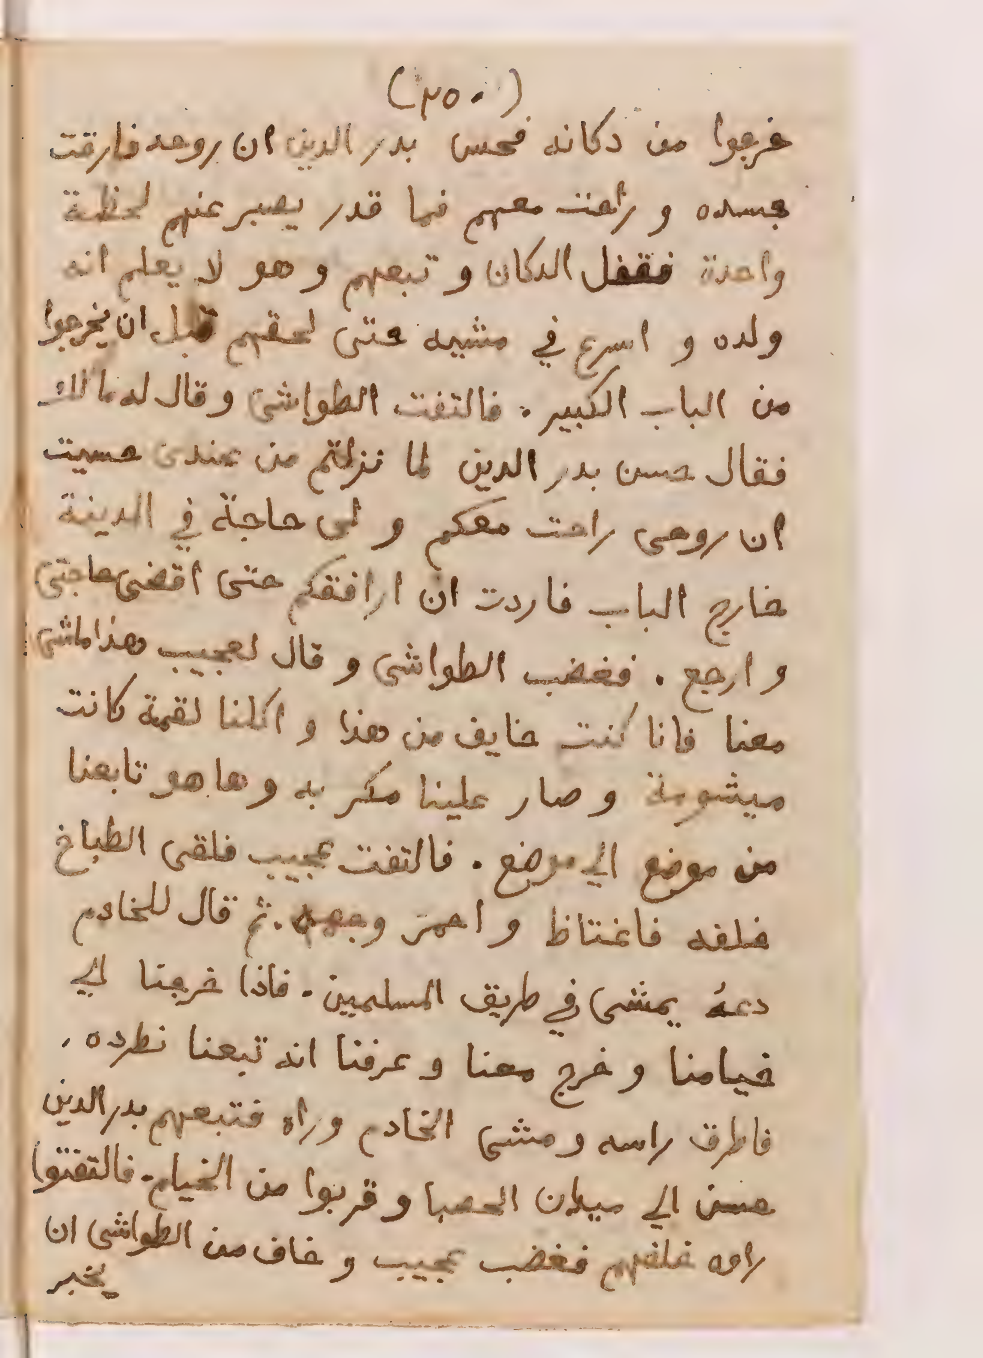 (٢٥٠)
خرجوا من دكانه فحس بدر الدين ان روحه فارقت
جسده و راحت معهم فما قدر يصبر عنهم لحظة
واحدة فقفل الدكان و تبعهم و هو لا يعلم انه
ولده و اسرع في مشيه حتى لحقهم قبل ان يخرجوا
من الباب الكبير . فالتفت الطواشى و قال له مالك
فقال حسن بدر الدين لما نزلتم من عندى حسيت
ان روحى راحت معكم و لى حاجة في المدينة
خارج الباب فاردت ان ارافقكم حتى اقضى حاجتى
و ارجع . فغضب الطواشى و قال لعجيب هذا ماشى
معنا فانا كنت خايف من هذا و اكلنا لقمة كانت
ميشومة و صار علينا مكر به و ها هو تابعنا
من موضع الي موضع . فالتفت عجيب فلقى الطباخ
خلفه فاغتاظ و احمر وجهه . ثم قال للخادم
دعهُ يمشى في طريق المسلمين . فاذا خرجنا الي
خيامنا و خرج معنا و عرفنا انه تبعنا نطرده .
فاطرق راسه و مشى الخادم وراه فتبعهم بدر الدين
حسن الي ميدان الحصبا و قربوا من الخيام . فالتفتوا
راوه خلفهم فغضب عجيب و خاف من الطواشى ان
يخبر